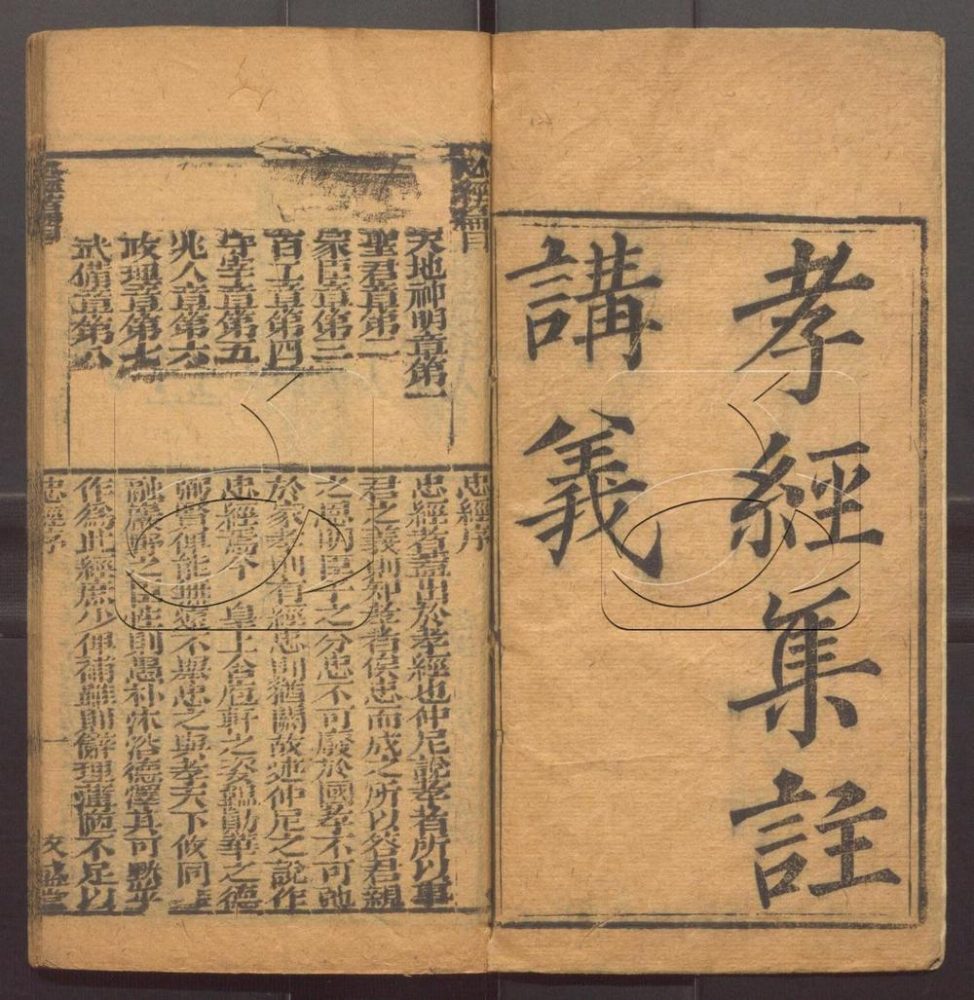 孝經集註
講義
忠經篇目
天地神明章第一
聖君章第二
冢臣章第三
百工章第四
守宰章第五
兆人章第六
政理章第七
武備章第八
忠經序
忠經者蓋出於孝經也仲尼說孝者所以事
君之義則知孝者俟忠而成之所以答君親
之恩明臣子之分忠不可廢於國孝不可弛
於家孝則有經忠則猶闕故述仲尼之說作
忠經焉今 皇上含庖軒之姿韞勛華之德
弼賢俾能無遠不舉忠之與孝天下攸同
融巖野之臣性則愚朴沐浴德澤其可默乎
作為此經庶少俾補雖則辭理薄陋不足以
忠經序 一 文盛堂